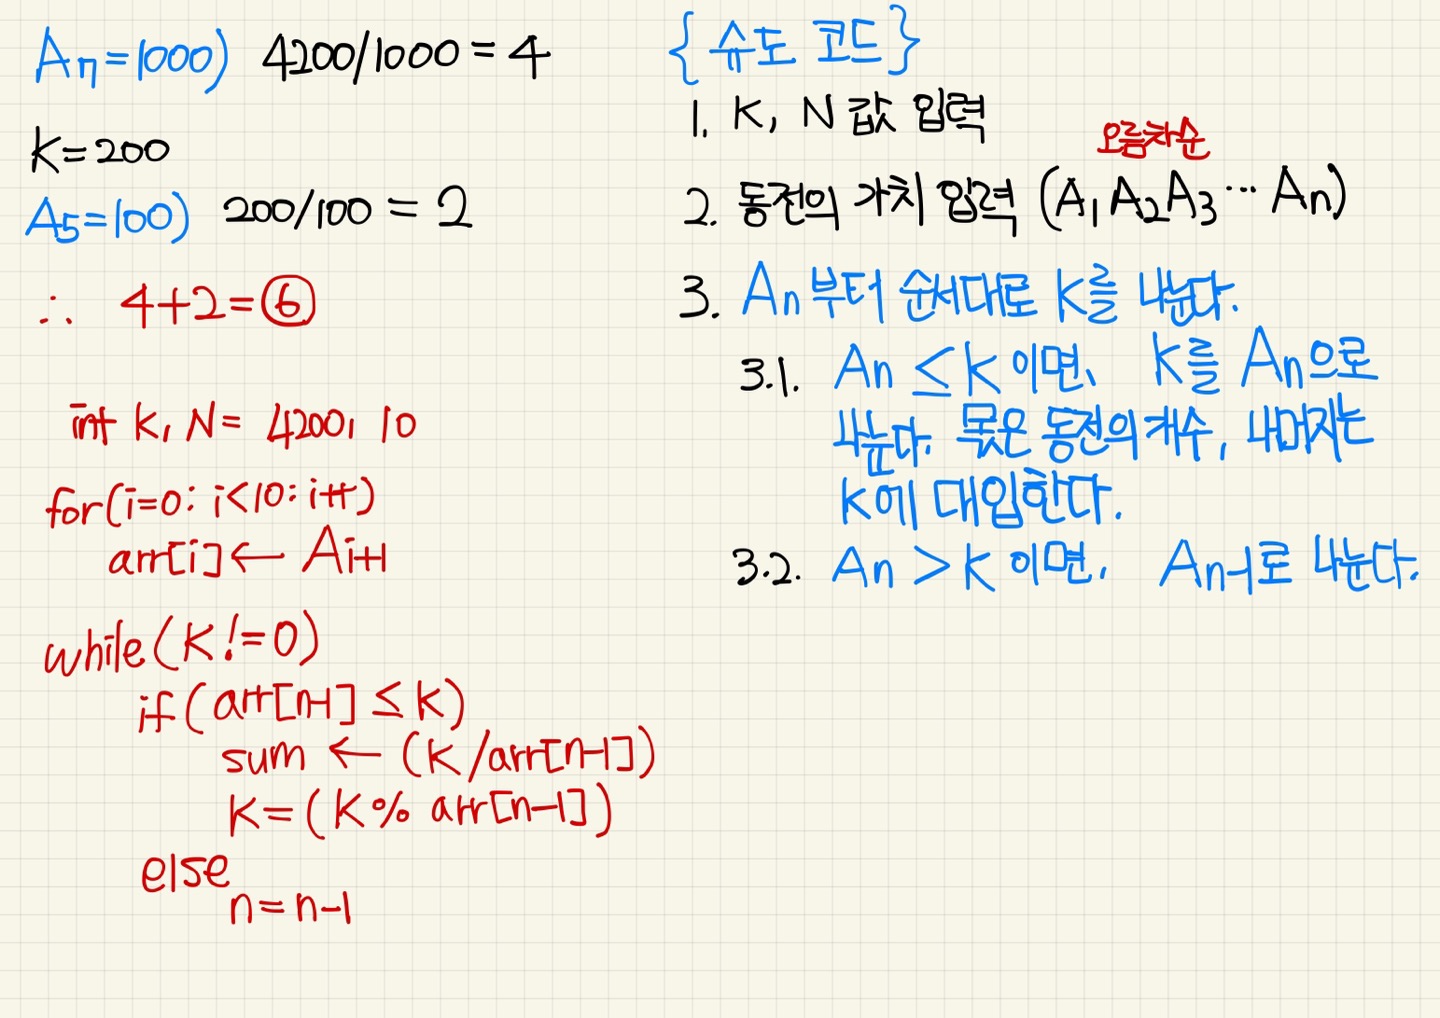 A₇=1000) 4200/1000 = 4
K=200
A₅=100) 200/100 = 2
∴ 4+2=⑥
int K, N = 4200, 10
for(i=0: i<10: i++)
arr[i] ← Ai+1
while(K!=0)
if(arr[n-1] ≤ K)
sum ← (K/arr[n-1])
K=(K% arr[n-1])
else
n=n-1
{슈도 코드}
1. K, N 값 입력
오름차순
2. 동전의 가치 입력 (A₁ A₂ A₃ … An)
3. An부터 순서대로 K를 나눈다.
3.1. An ≤ K 이면, K를 An으로
나눈다. 몫은 동전의 개수, 나머지는
K에 대입한다.
3.2. An > K 이면, An-1로 나눈다.